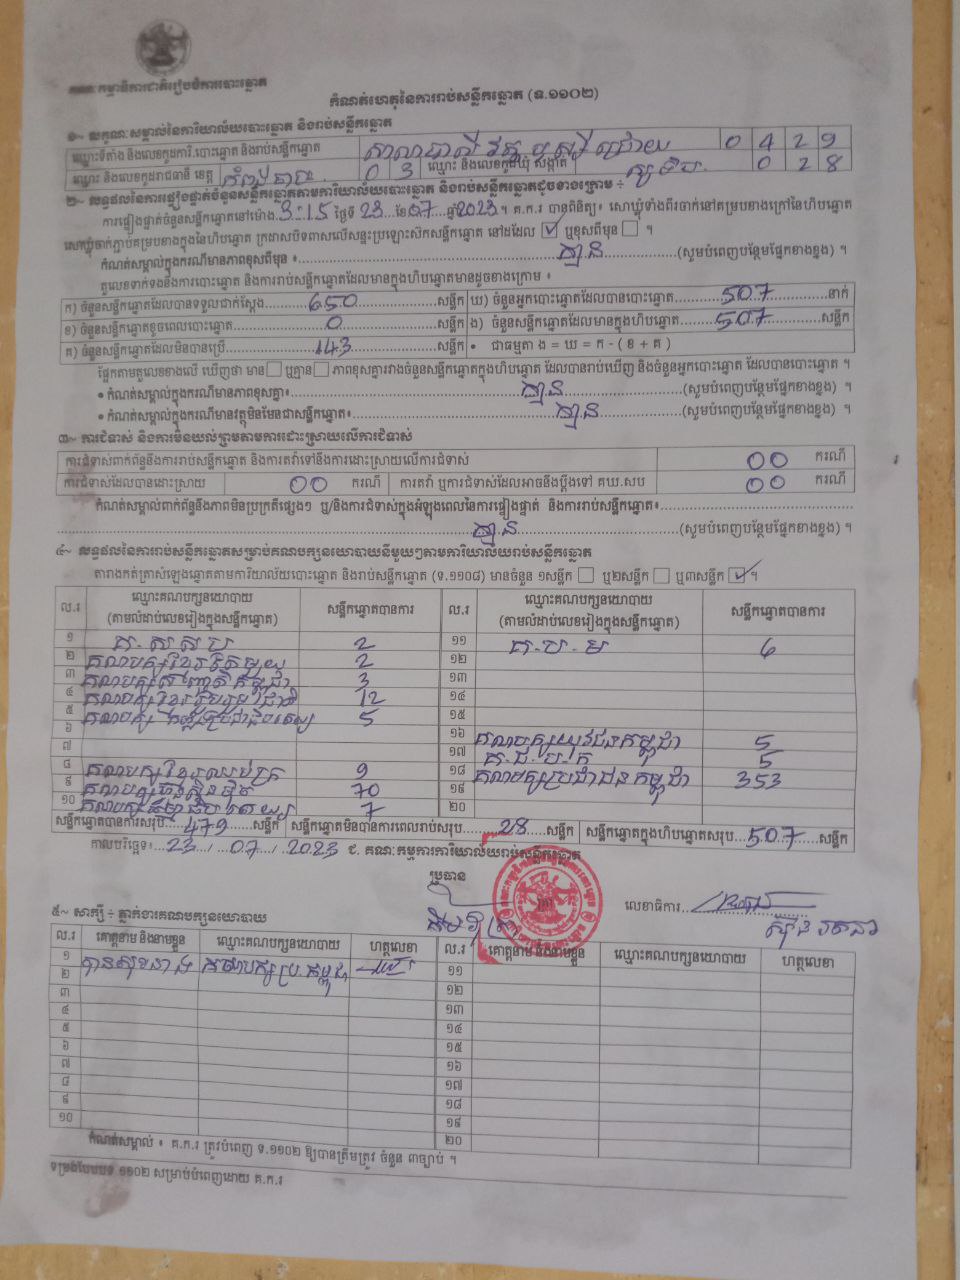 គណៈកម្មាធិការជាតិរៀបចំការបោះឆ្នោត
កំណត់ហេតុនៃការរាប់សន្លឹកឆ្នោត (ទ.១១០២)
១~ លក្ខណៈសម្គាល់នៃការិយាល័យបោះឆ្នោត និងរាប់សន្លឹកឆ្នោត
ឈ្មោះទីតាំង និងលេខកូដការិ.បោះឆ្នោត និងរាប់សន្លឹកឆ្នោត 0 4 2 9
ឈ្មោះ និងលេខកូដរាជធានី ខេត្ត កំពង់ចាម 0 3 ឈ្មោះ និងលេខកូដឃុំ សង្កាត់ 0 2 8
២~ លទ្ធផលនៃការផ្ទៀងផ្ទាត់ចំនួនសន្លឹកឆ្នោតតាមការិយាល័យបោះឆ្នោត និងរាប់សន្លឹកឆ្នោតដូចខាងក្រោម ÷
ការផ្ទៀងផ្ទាត់ចំនួនសន្លឹកឆ្នោតនៅម៉ោង 3:15 ថ្ងៃទី 23 ខែ 07 ឆ្នាំ 2023 ។ គ.ក.រ បានពិនិត្យ៖ សោឃ្លុំទាំងពីរចាក់នៅគម្របខាងក្រៅនៃហិបឆ្នោត
សោឃ្លុំចាក់ភ្ជាប់គម្របខាងក្នុងនៃហិបឆ្នោត ក្រដាសបិទពាសលើសន្ទះប្រឡោះស៊កសន្លឹកឆ្នោត នៅដដែល ✓ ឬខុសពីមុន ។
កំណត់សម្គាល់ក្នុងករណីមានភាពខុសពីមុន ៖ គ្មាន (សូមបំពេញបន្ថែមផ្នែកខាងខ្នង) ។
តួលេខទាក់ទងនឹងការបោះឆ្នោត និងការរាប់សន្លឹកឆ្នោតដែលមានក្នុងហិបឆ្នោតមានដូចខាងក្រោម ៖
ក) ចំនួនសន្លឹកឆ្នោតដែលបានទទួលជាក់ស្តែង 650 សន្លឹក ឃ) ចំនួនអ្នកបោះឆ្នោតដែលបានបោះឆ្នោត 507 នាក់
ខ) ចំនួនសន្លឹកឆ្នោតខូចពេលបោះឆ្នោត 0 សន្លឹក ង) ចំនួនសន្លឹកឆ្នោតដែលមានក្នុងហិបឆ្នោត 507 សន្លឹក
គ) ចំនួនសន្លឹកឆ្នោតដែលមិនបានប្រើ 143 សន្លឹក • ជាធម្មតា ង = ឃ = ក - ( ខ + គ )
ផ្អែកតាមតួលេខខាងលើ ឃើញថា មាន ឬគ្មាន ភាពខុសគ្នារវាងចំនួនសន្លឹកឆ្នោតក្នុងហិបឆ្នោត ដែលបានរាប់ឃើញ និងចំនួនអ្នកបោះឆ្នោត ដែលបានបោះឆ្នោត ។
• កំណត់សម្គាល់ក្នុងករណីមានភាពខុសគ្នា៖ គ្មាន (សូមបំពេញបន្ថែមផ្នែកខាងខ្នង) ។
• កំណត់សម្គាល់ក្នុងករណីមានវត្ថុមិនមែនជាសន្លឹកឆ្នោត៖ គ្មាន (សូមបំពេញបន្ថែមផ្នែកខាងខ្នង) ។
៣~ ការជំទាស់ និងការមិនយល់ព្រមតាមការដោះស្រាយលើការជំទាស់
ការជំទាស់ពាក់ព័ន្ធនឹងការរាប់សន្លឹកឆ្នោត និងការតវ៉ាទៅនឹងការដោះស្រាយលើការជំទាស់ 00 ករណី
ការជំទាស់ដែលបានដោះស្រាយ 00 ករណី ការតវ៉ា ឬការជំទាស់ដែលអាចនឹងប្តឹងទៅ គឃ.សប 00 ករណី
កំណត់សម្គាល់ពាក់ព័ន្ធនឹងភាពមិនប្រក្រតីផ្សេងៗ ឬ/និងការជំទាស់ក្នុងអំឡុងពេលនៃការផ្ទៀងផ្ទាត់ និងការរាប់សន្លឹកឆ្នោត៖
គ្មាន (សូមបំពេញបន្ថែមផ្នែកខាងខ្នង) ។
៤~ លទ្ធផលនៃការរាប់សន្លឹកឆ្នោតសម្រាប់គណបក្សនយោបាយនីមួយៗតាមការិយាល័យរាប់សន្លឹកឆ្នោត
តារាងកត់ត្រាសំឡេងឆ្នោតតាមការិយាល័យបោះឆ្នោត និងរាប់សន្លឹកឆ្នោត (ទ.១១០៨) មានចំនួន ១សន្លឹក ឬ២សន្លឹក ឬ៣សន្លឹក ✓ ។
ល.រ ឈ្មោះគណបក្សនយោបាយ (តាមលំដាប់លេខរៀងក្នុងសន្លឹកឆ្នោត) សន្លឹកឆ្នោតបានការ ល.រ ឈ្មោះគណបក្សនយោបាយ (តាមលំដាប់លេខរៀងក្នុងសន្លឹកឆ្នោត) សន្លឹកឆ្នោតបានការ
១ គ.ស.ស.ប 2 ១១ គ.ប.ម 6
២ 2 ១២
៣ 3 ១៣
៤ 12 ១៤
៥ 5 ១៥
៦ ១៦ គណបក្សយុវជនកម្ពុជា 5
៧ ១៧ 5
៨ 9 ១៨ គណបក្សប្រជាជនកម្ពុជា 353
៩ 70 ១៩
១០ 7 ២០
សន្លឹកឆ្នោតបានការសរុប 479 សន្លឹក សន្លឹកឆ្នោតមិនបានការពេលរាប់សរុប 28 សន្លឹក សន្លឹកឆ្នោតក្នុងហិបឆ្នោតសរុប 507 សន្លឹក
កាលបរិច្ឆេទ៖ 23 / 07 / 2023 ជ. គណៈកម្មការការិយាល័យរាប់សន្លឹកឆ្នោត
ប្រធាន
លេខាធិការ
៥~ សាក្សី ÷ ភ្នាក់ងារគណបក្សនយោបាយ
ល.រ គោត្តនាម និងនាមខ្លួន ឈ្មោះគណបក្សនយោបាយ ហត្ថលេខា ល.រ គោត្តនាម និងនាមខ្លួន ឈ្មោះគណបក្សនយោបាយ ហត្ថលេខា
១ ១១
២ ១២
៣ ១៣
៤ ១៤
៥ ១៥
៦ ១៦
៧ ១៧
៨ ១៨
៩ ១៩
១០ ២០
កំណត់សម្គាល់ ៖ គ.ក.រ ត្រូវបំពេញ ទ.១១០២ ឱ្យបានត្រឹមត្រូវ ចំនួន ៣ច្បាប់ ។
ទម្រង់បែបបទ ១១០២ សម្រាប់បំពេញដោយ គ.ក.រ